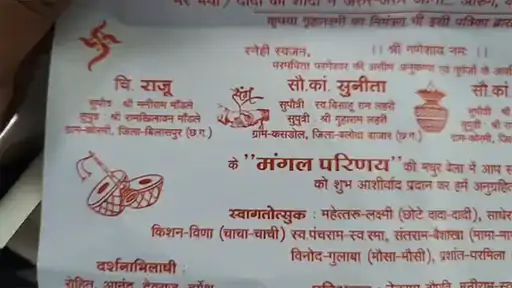 कृपया गृहलक्ष्मी का निमंत्रण भी इसी पत्रिका
स्नेही स्वजन, ।। श्री गणेशाय नमः ।।
परमपिता परमेश्वर की असीम अनुकम्पा एवं पूर्वजों के
चि. राजू
सुपौत्र : श्री मनीराम माँडले
सुपुत्र : श्री रामखिलावन माँडले
ग्राम-कोरमी, जिला-बिलासपुर (छ.ग.)
सौ.कां. सुनीता
सुपौत्री : स्व.बिसाहू राम लहरी
सुपुत्री : श्री गुहाराम लहरी
ग्राम-कसडोल, जिला-बलौदा बाजार (छ.ग.)
सौ कां
सुपौत्री श्री
ग्राम-कोरमी,
के "मंगल परिणय" की मधुर बेला में आप
को शुभ आशीर्वाद प्रदान कर हमें
स्वागतोत्सुक : महेत्तरु-लक्ष्मी (छोटे दादा-दादी),
किशन-विणा (चाचा-चाची) स्व पंचराम-स्व रमा, संतराम-बैशाखा
विनोद-गुलाबा (मौसा-मौसी), प्रशांत-परमिला
दर्शनाभिलाषी :
रोहित, आनंद,